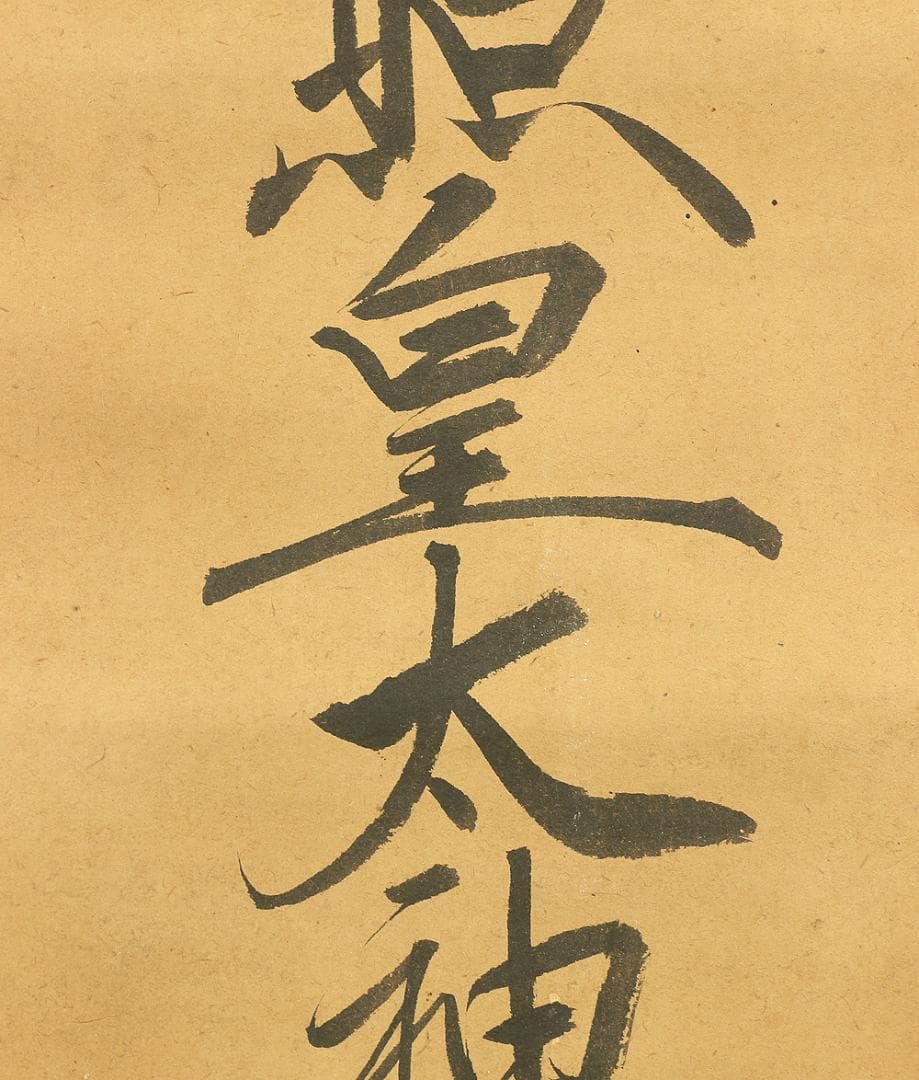 照皇太神